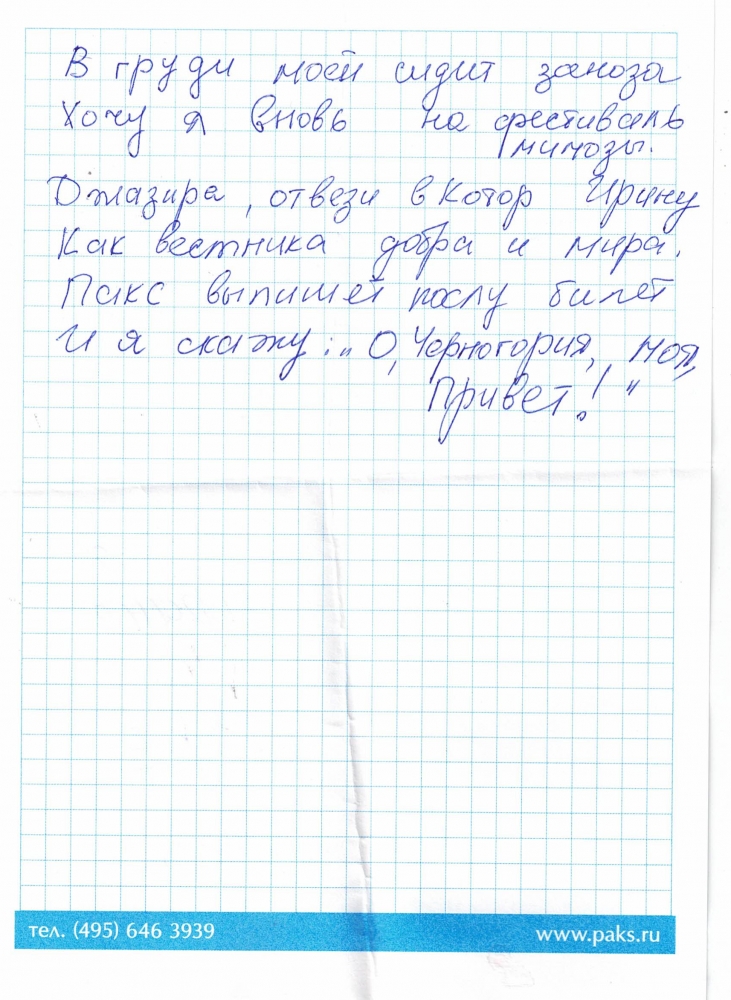 В груди моей сидит заноза
Хочу я вновь на фестиваль
мимозы.
Джазира, отвези в Котор Ирину
Как вестника добра и мира.
Пакс выпишет послу билет
И я скажу: „О, Черногория, моя,
Привет!"
тел. (495) 646 3939
www.paks.ru